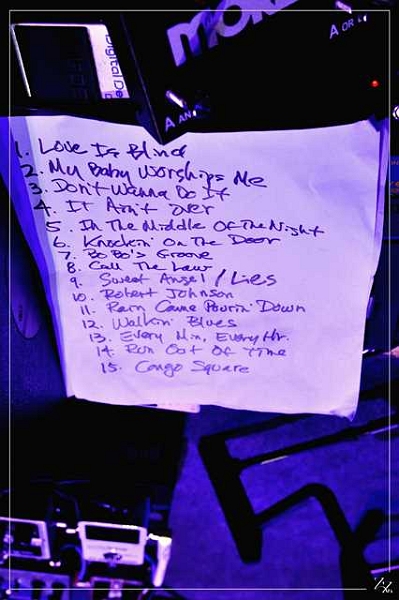 A OR
Digital De
A AN
1. Love Is Blind
2. My Baby Worships Me
3. Don't Wanna Do It
4. It Ain't over
5. In The Middle Of The Night
6. Knockin' On The Door
7. BoBo's Groove
8. Call The Law
9. Sweet Angel / Lies
10. Robert Johnson
11. Rain Came Pourin' Down
12. Walkin' Blues
13. Every Min, Every Hr.
14. Run Out Of Time
15. Congo Square